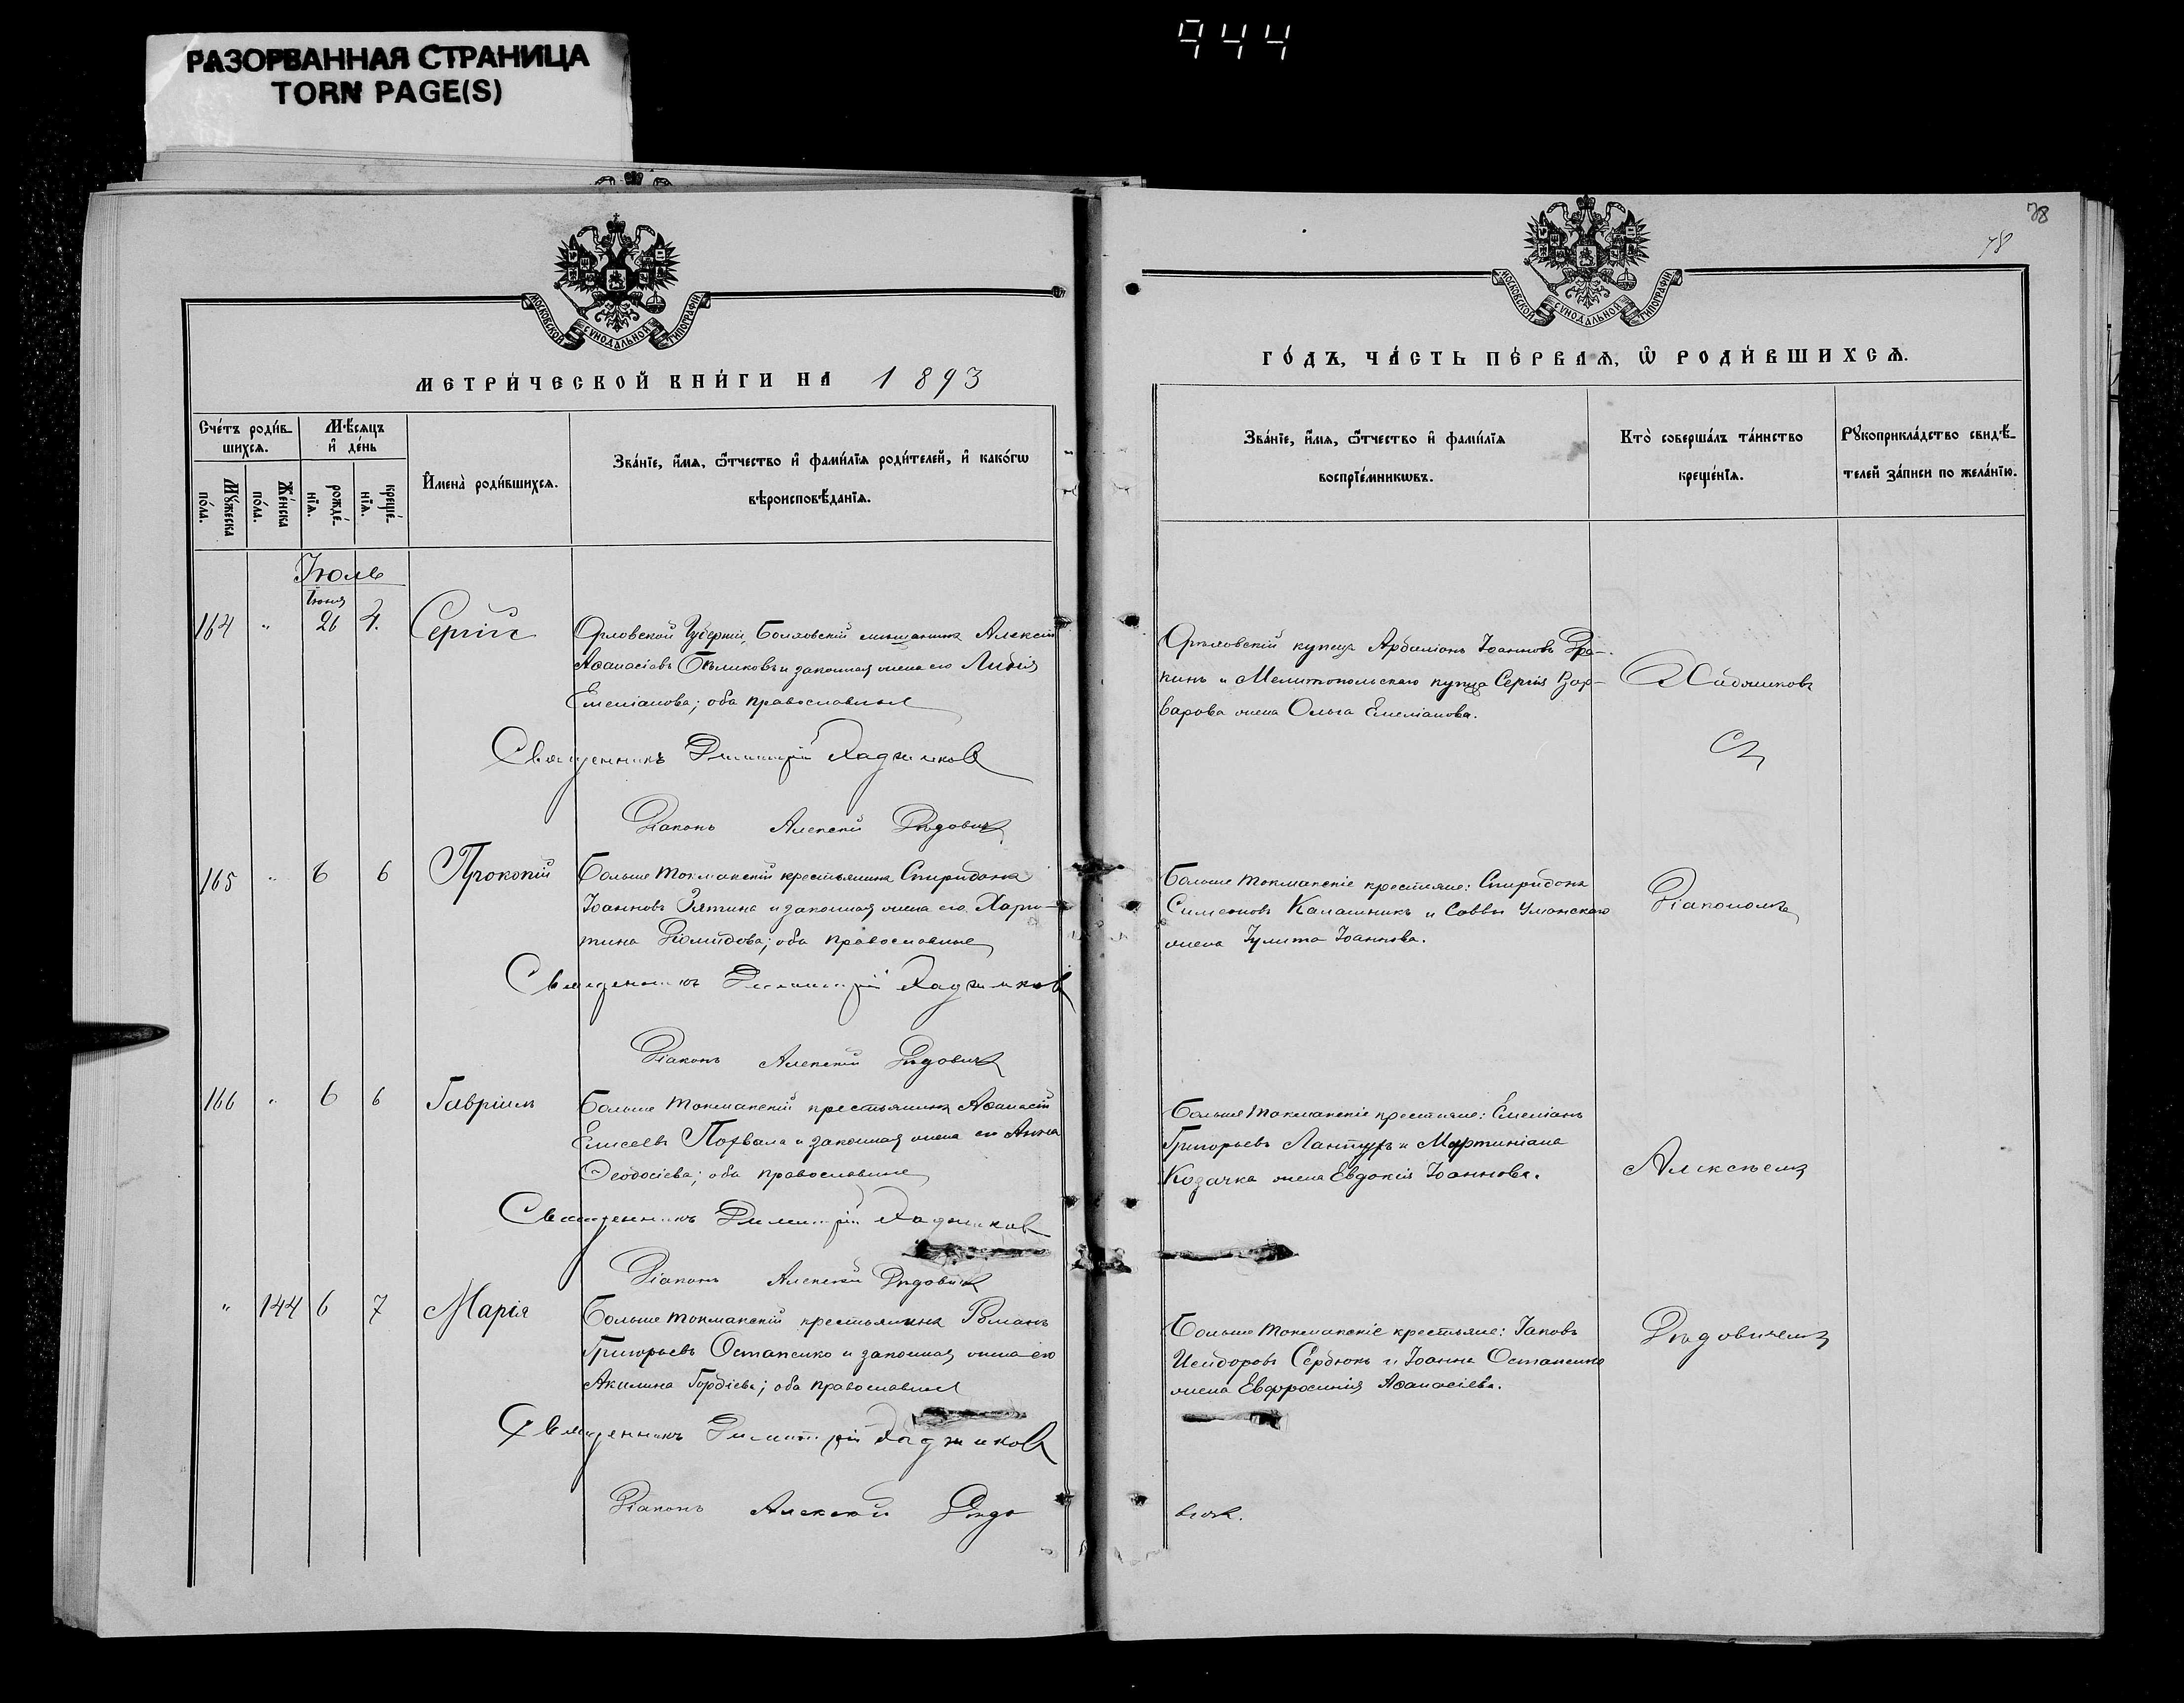 944
РАЗОРВАННАЯ СТРАНИЦА
TORN PAGE(S)
МОСКОВСКОЙ СѴНОДАЛЬНОЙ ТИПОГРАФІИ
МЕТРИ́ЧЕСКОЙ КНИ́ГИ НА 1893
Сче́тъ роди́вшихсѧ.
Мѣ́сѧцъ и҆ де́нь
Мꙋ́жеска по́ла.
Же́нска по́ла.
рожде́нїѧ.
креще́нїѧ.
И҆мена̀ роди́вшихсѧ.
Зва́нїе, и҆́мѧ, ѻ҆́тчество и҆ фами́лїѧ роди́телей, и҆ како́гѡ
вѣроисповѣ́данїѧ.
Іюль
Іюня
164 " 26 4. Сергій Орловской Губерніи, Болховскій мещанинъ Алексій
Аѳанасіевъ Бѣликовъ и законная жена его Лидія
Емеліанова; оба православные
Священникъ Димитрій Хаджиновъ
Діаконъ Алексій Дѣдовичъ
165 " 6 6 Прокопій Больше Токмакскій крестьянинъ Спиридонъ
Іоанновъ Зятинъ и законная жена его Хари-
тина Діомидова; оба православные
Священникъ Димитрій Хаджиновъ
Діаконъ Алексій Дѣдовичъ
166 " 6 6 Гавріилъ Больше Токмакскій крестьянинъ Аѳанасій
Елисеевъ Похвала и законная жена его Анна
Ѳеодосіева; оба православные
Священникъ Димитрій Хаджиновъ
Діаконъ Алексій Дѣдовичъ
" 144 6 7 Марія Больше Токмакскій крестьянинъ Романъ
Григорьевъ Остапенко и законная жена его
Акилина Гордіева; оба православные
Священникъ Димитрій Хаджиновъ
Діаконъ Алексій Дѣдо
вичъ.
78
78
МОСКОВСКОЙ СѴНОДАЛЬНОЙ ТИПОГРАФІИ
ГО́ДЪ, ЧА́СТЬ ПЕ́РВАѦ, Ѡ҆ РОДИ́ВШИХСѦ.
Зва́нїе, и҆́мѧ, ѻ҆́тчество и҆ фами́лїѧ
воспрїе́мникѡвъ.
Кто̀ соверша́лъ та́инство
креще́нїѧ.
Рꙋкоприкла́дство свидѣ́-
телей за́писи по жела́нїю.
купецъ Іоанновъ
кинъ и Мелитопольскаго купца Сергія Вар-
варова жена Ольга Емеліанова.
Больше Токмакскіе крестьяне: Спиридонъ
Симеоновъ Калашникъ и Саввы Уманскаго
жена Іулита Іоаннова.
Діакономъ
Больше Токмакскіе крестьяне: Емеліанъ
Григорьевъ Лантухъ и Мартиніана
Козачка жена Евдокія Іоаннова.
Алексѣемъ
Больше Токмакскіе крестьяне: Іаковъ
Исидоровъ Сердюкъ и Іоанна Остапенко
жена Евфросинія Аѳанасіева.
Дѣдовичемъ